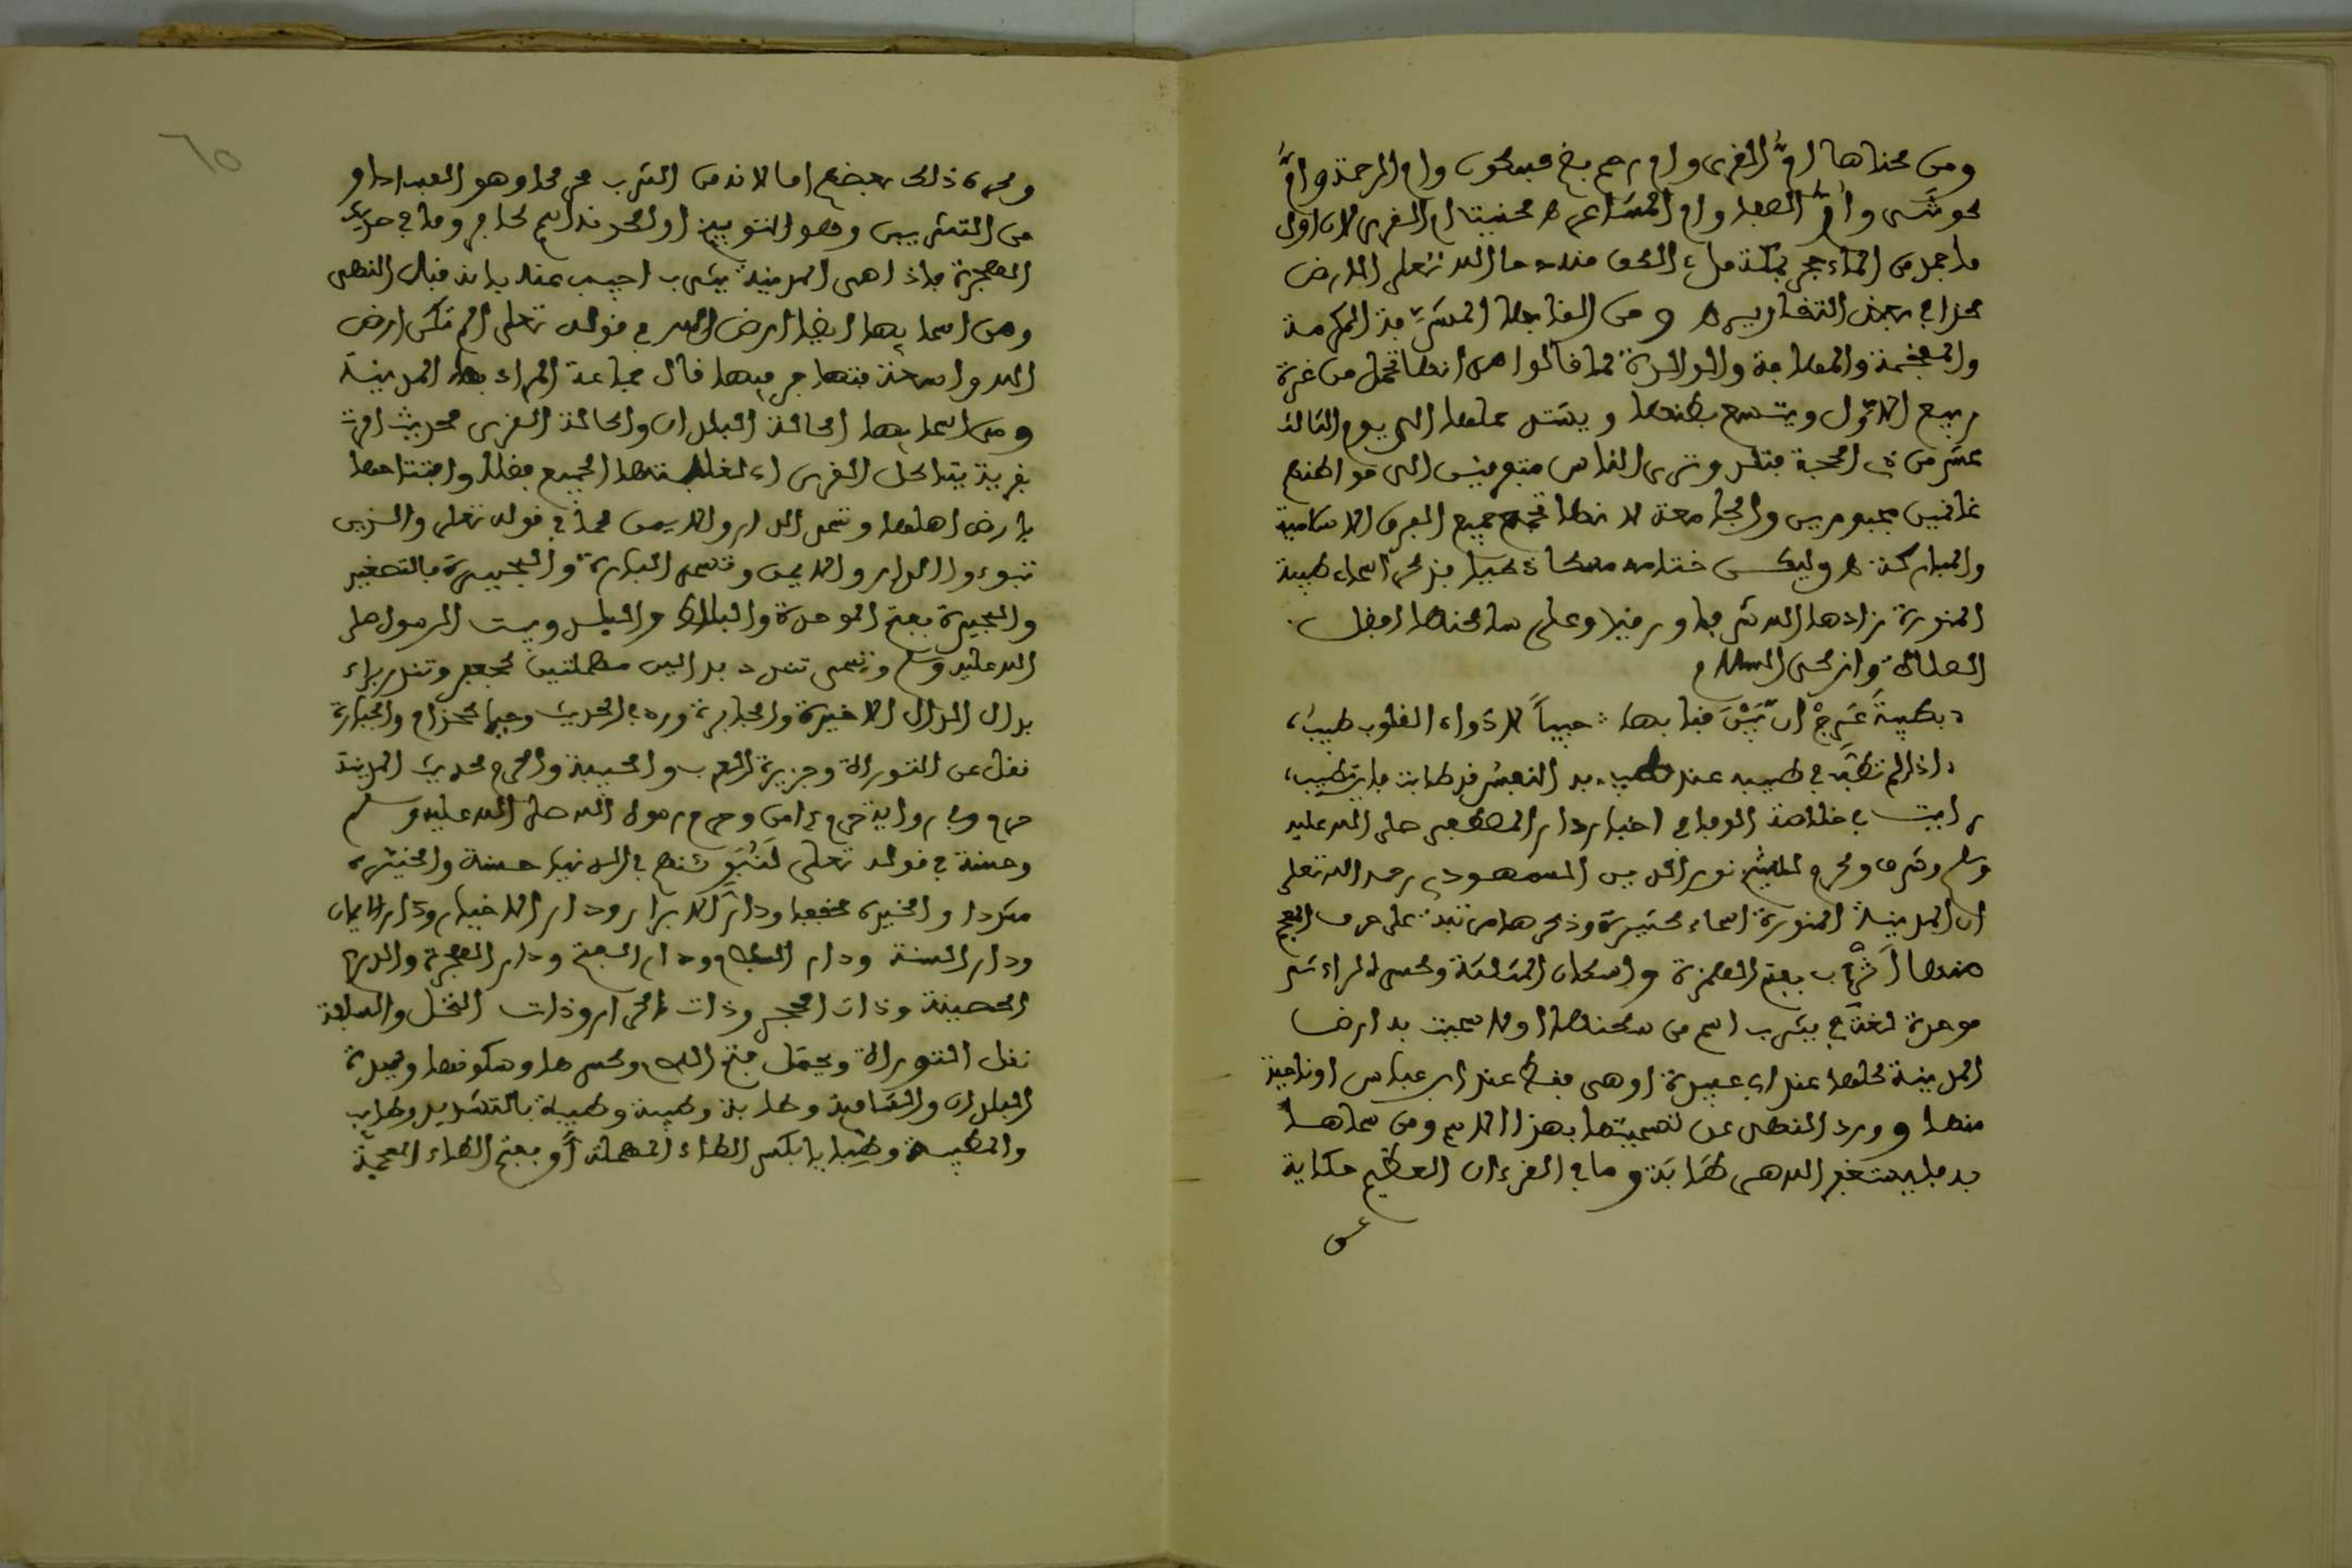 ومن كناها ام القرى وام رحم بضم فسكون وام الرحمة وام
كوثى وام الصفا وام المشاعر كنيتا ام القرى لان اول
ما جمد من الماء حجر بمكة ماء الكعبة منه دحا الله تعلى الارض
كذا في بعض التفاسير ومن القابها المشرفة المكرمة
والمفخمة والمهابة والوالدة لما قالوا من انها تحمل من غرة
ربيع الاول ويتسع بطنها ويشتد عليها الى يوم الثالث
عشر من ذي الحجة فتلد وترى الناس متوجهين الى مواطنهم
غانمين مجبورين والجامعة لانها تجمع جميع الفرق الاسلامية
والمباركة وليكن ختامه مسكا طيبا بذكر اسماء طيبة
المنورة زادها الله شرفا ورفيا وعلى ساكنها افضل
الصلاة وازكى السلام
بطيبة عرج ان بين قبابها حبيبا لادواء القلوب طبيب
اذا لم تطب في طيبة عند طيب به النفس قد طابت فاين تطيب
رايت في خلاصة الوفا في اخبار دار المصطفى صلى الله عليه
وسلم وشرف وكرم للشيخ نور الدين السمهودي رحمه الله تعلى
ان للمدينة المنورة اسماء كثيرة وذكرها مرتبة على حروف المعجم
منها أثرب بفتح الهمزة واسكان المثلثة وكسر الراء ثم
موحدة لغة في يثرب اسم من سكنها اولا سميت به ارض
المدينة كلها عند ابي عبيدة او هي فقط عند ابن عباس او ناحية
منها وورد النهى عن تسميتها بهذا الاسم ومن سماها
به فليستغفر الله هى طابة وما في القرءان العظيم حكاية
وكره ذلك بعضهم اما لانه من الثرب محركا وهو الفساد او
من التثريب وهو التوبيخ او لكونه اسم كافر وما في حديث
الهجرة فاذا هى المدينة يثرب اجيب عنه بانه قبل النهى
ومن اسمايها ايضا ارض الله في قوله تعلى الم تكن ارض
الله واسعة فتهاجروا فيها قال جماعة المراد بها المدينة
ومن اسمايها اكالة البلدان واكالة القرى لحديث امرت
بقرية تاكل القرى اي لغلبتها الجميع فضلا وافتتاحها
بايدي اهلها وتسمى الدار والايمن كما في قوله تعلى والذين
تبوءوا الدار والايمن وتسمى البارة والبحيرة بالتصغير
والبحيرة بفتح الموحدة والبلاط والبلد وبيت الرسول صلى
الله عليه وسلم وتسمى تندد بدالين مهملتين كجعفر وتندر براء
بدل الدال الاخيرة والجابرة ورد في الحديث وجبار كحذام والجبارة
نقل عن التوراة وجزيرة العرب والحبيبة والحرم لحديث المدينة
حرم وفي رواية حرم ءامن وحرم رسول الله صلى الله عليه وسلم
وحسنة في قوله تعلى لنبوئنهم في الدنيا حسنة والخيرة
مشددا والخيرة مخففا ودار الابرار ودار الاخيار ودار الايمان
ودار السنة ودار السلام ودار الفتح ودار الهجرة والدرع
الحصينة وذات الحجر وذات الحرار وذات النخل والسلقة
نقل التوراة ويحتمل فتح اللام وكسرها وسكونها وسيدة
البلدان والشافية وطابة وطيبة وطيبة بالتشديد وطايب
والمطيبة وظبابا بكسر الطاء المهملة أو بفتح الظاء المعجمة